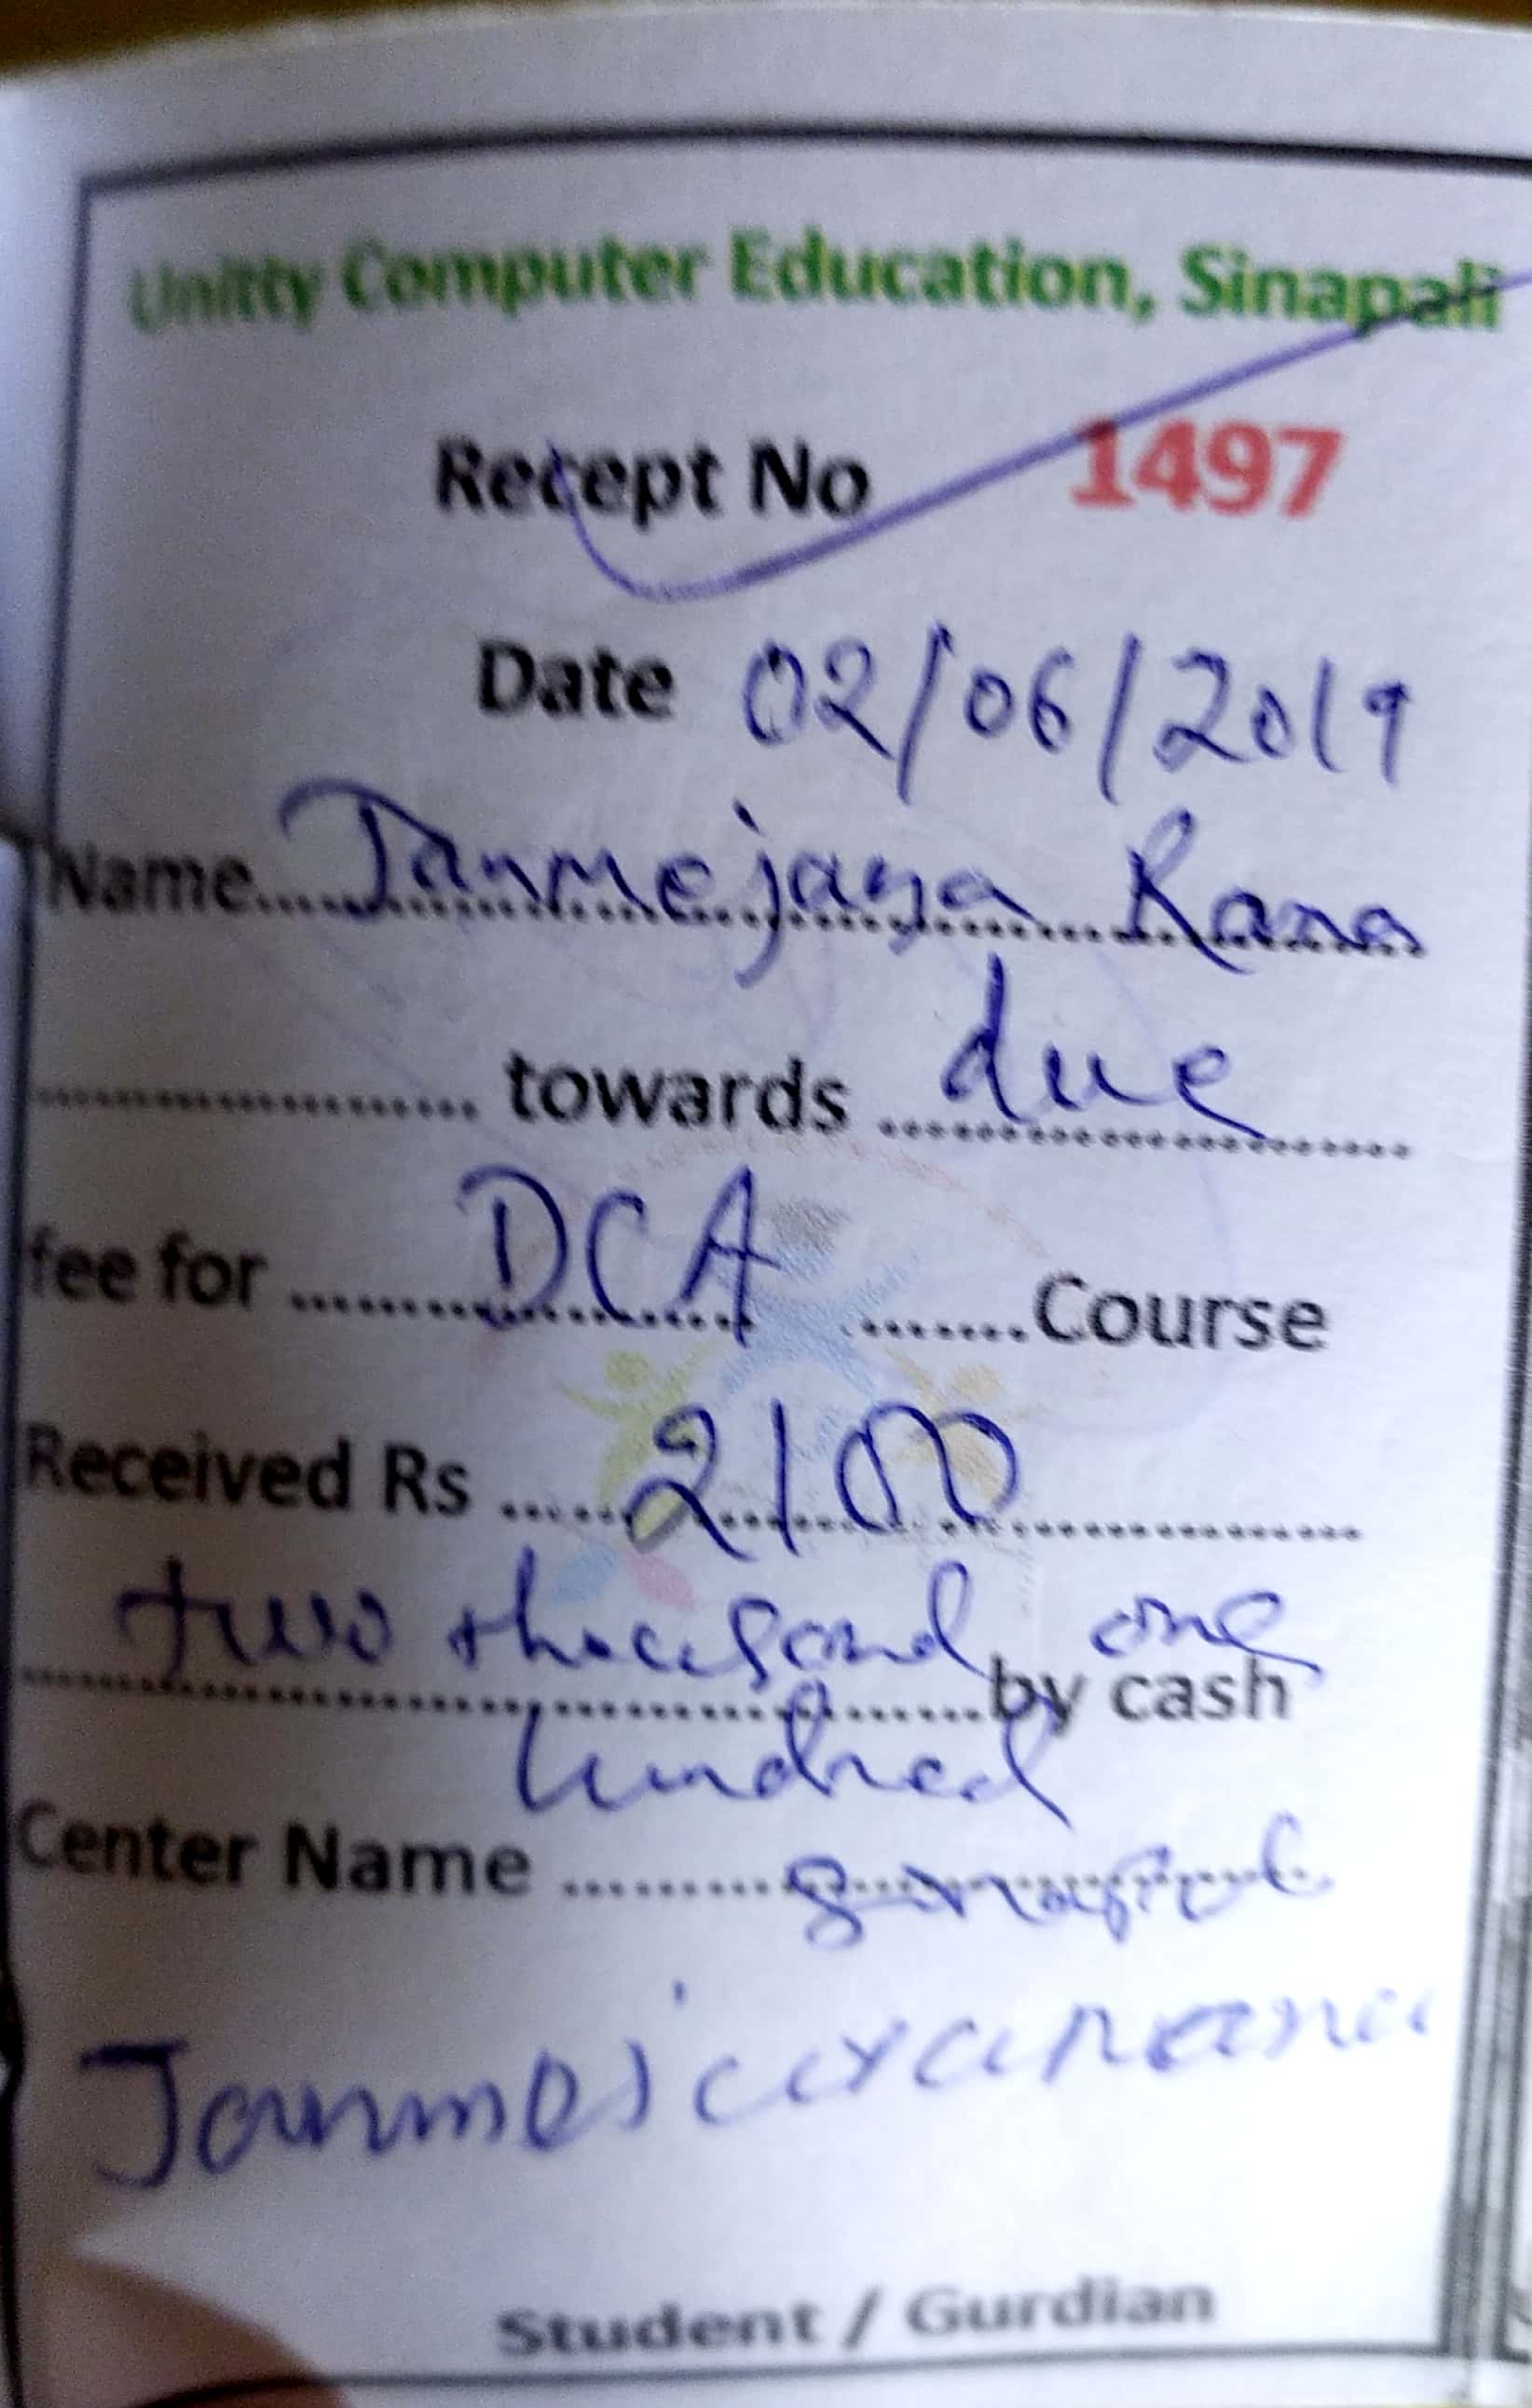 Unitty Computer Education, Sinapali
Recept No 1497
Date 02/06/2019
Name.....Janmejaya Rana
.................... towards ....due
fee for ....DCA .......Course
Received Rs ....2100
two thousand one
....................by cash
hundred
Center Name ..........Sinapali
Janmejaya Rana
Student / Gurdian